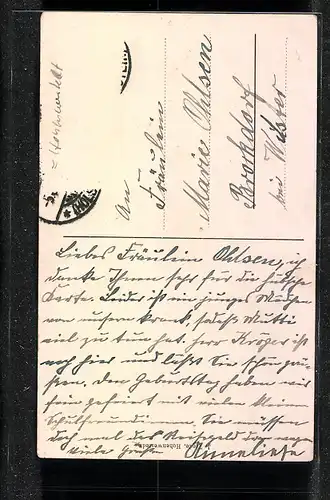 An
Fräulein
Marie Ohlsen
Brokdorf
bei Wilster
Liebes Fräulein Ohlsen, ich
danke Ihnen sehr für die hübsche
Karte. Leider ist ein junges Mädchen
von unsern krank, sodaß Mutti
viel zu tun hat. Herr Kröger ist
noch hier und läßt Sie schön grü-
ßen. Den Geburtstag haben wir
fein gefeiert mit vielen kleinen
Schulfreundinnen. Sie müssen
doch mal das
viele Grüße Anneliese